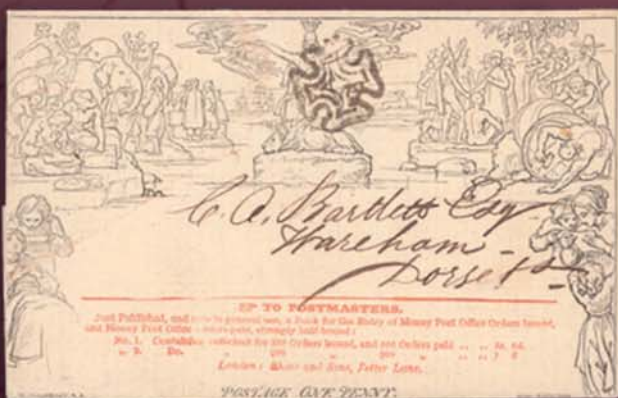 C. A. Bartlett Esq
Wareham
Dorset
TO POSTMASTERS.
Just Published, and now in general use, a Book for the Entry of Money Post Office Orders issued,
and Money Post Office Orders paid, strongly half bound:
No. 1. Containing sufficient for 500 Orders issued, and 500 Orders paid
„ 2. Do.
London: Shaw and Sons, Fetter Lane.
POSTAGE ONE PENNY.